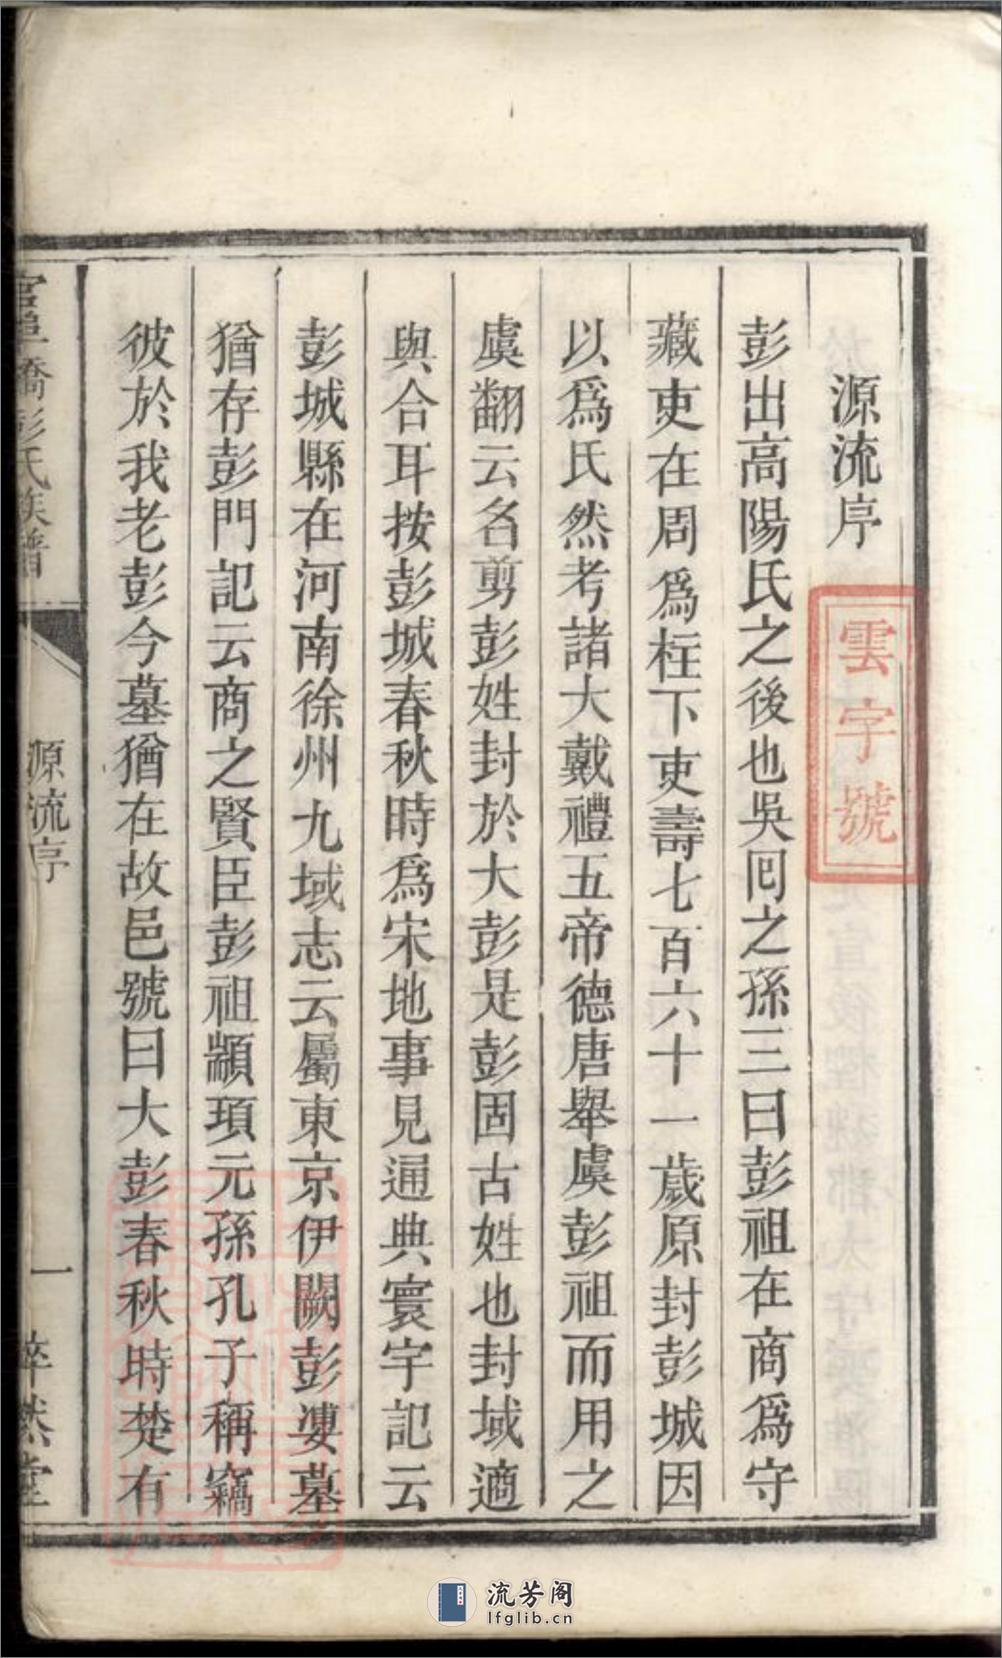 源流序
雲字號
彭出高陽氏之後也吳囘之孫三曰彭祖在商爲守
藏吏在周爲柱下吏壽七百六十一歲原封彭城因
以爲氏然考諸大戴禮五帝德唐舉虞彭祖而用之
虞翻云名剪彭姓封於大彭是彭固古姓也封域適
與合耳按彭城春秋時爲宋地事見通典寰宇記云
彭城縣在河南徐州九域志云屬東京伊闕彭婆墓
猶存彭門記云商之賢臣彭祖顓頊元孫孔子稱竊
彼於我老彭今墓猶在故邑號曰大彭春秋時楚有
橋彭氏族譜
源流序
一
粹然堂
流芳阁
lfglib.cn